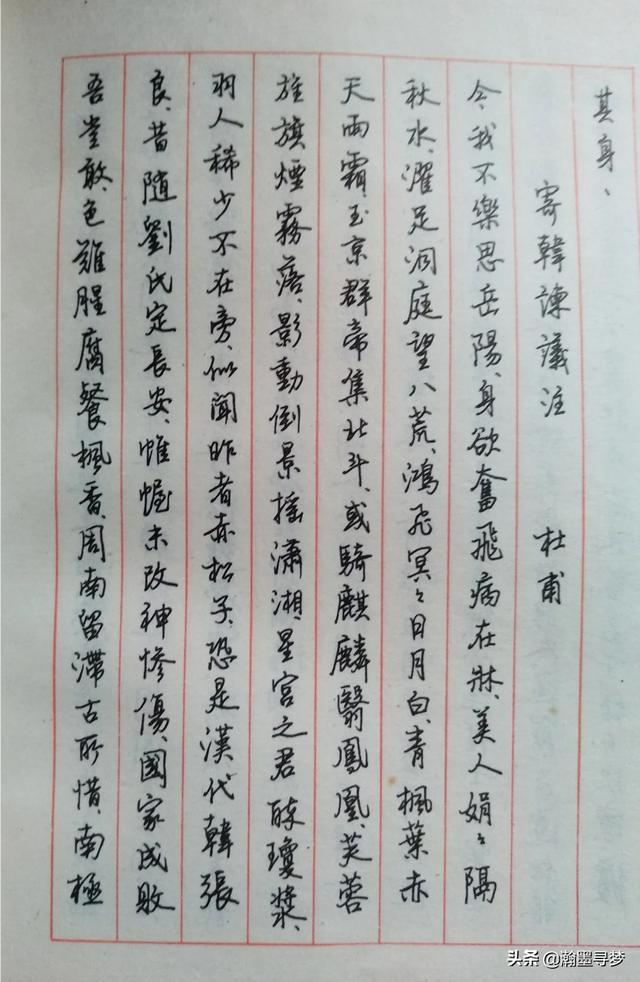 其身、
寄韓諫議注 杜甫
今我不樂思岳陽、身欲奮飛病在牀、美人娟〻隔
秋水、濯足洞庭望八荒、鴻飛冥〻日月白、青楓葉赤
天雨霜、玉京群帝集北斗、或騎麒麟翳鳳凰、芙蓉
旌旗煙霧落、影動倒景搖瀟湘、星宮之君醉瓊漿、
羽人稀少不在旁、似聞昨者赤松子、恐是漢代韓張
良、昔隨劉氏定長安、帷幄未改神慘傷、國家成敗
吾堂敢、色難腥腐餐楓香、周南留滯古所惜、南極
头条 @瀚墨寻梦